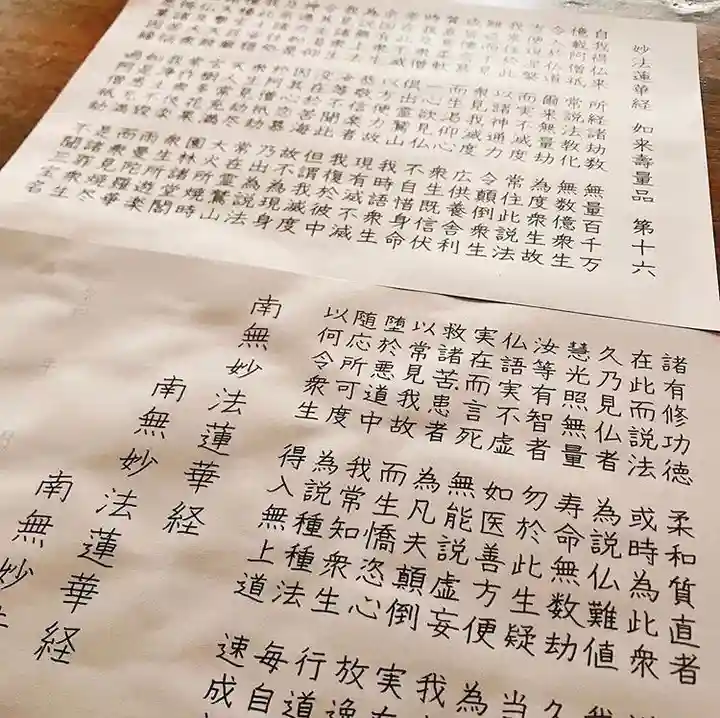 妙法蓮華経 如来壽量品 第十六
自我得仏来 所経諸劫数 無量百千万
億載阿僧祇 常説法教化 無数億衆生
令入於仏道 爾来無量劫 為度衆生故
方便現涅槃 而実不滅度 常住此説法
我常住於此 以諸神通力 令顛倒衆生
雖近而不見 衆見我滅度 広供養舎利
而生渇仰心 衆生既信伏
質直意柔軟 一心欲見仏 不自惜身命
時我及衆僧 倶出霊鷲山 我時語衆生
以方便力故 現有滅不滅
恭敬信楽者 我復於彼中
汝等不聞此 但謂我滅度
没在於苦海 故不為現身
因其心恋慕 乃出為説法
於阿僧祇劫 常在霊鷲山
衆生見劫尽 大火所焼時
天人常充満 園林諸堂閣
衆生所遊楽
雨曼陀羅華
而衆見焼尽
是諸罪衆生
不聞三宝名
諸有修功徳 柔和質直者
在此而説法 或時為此衆
久乃見仏者 為説仏難値 我
慧光照無量 寿命無数劫 久
汝等有智者 勿於此生疑 当
仏語実不虚 如医善方便 為
実在而言死 無能説虚妄 我
救諸苦患者 為凡夫顛倒 実
以常見我故 而生憍恣心 放逸
堕於悪道中 我常知衆生 行道
随応所可度 為説種種法 毎自
以何令衆生 得入無上道 速成
南無妙法蓮華経
南無妙法蓮華経
南無妙